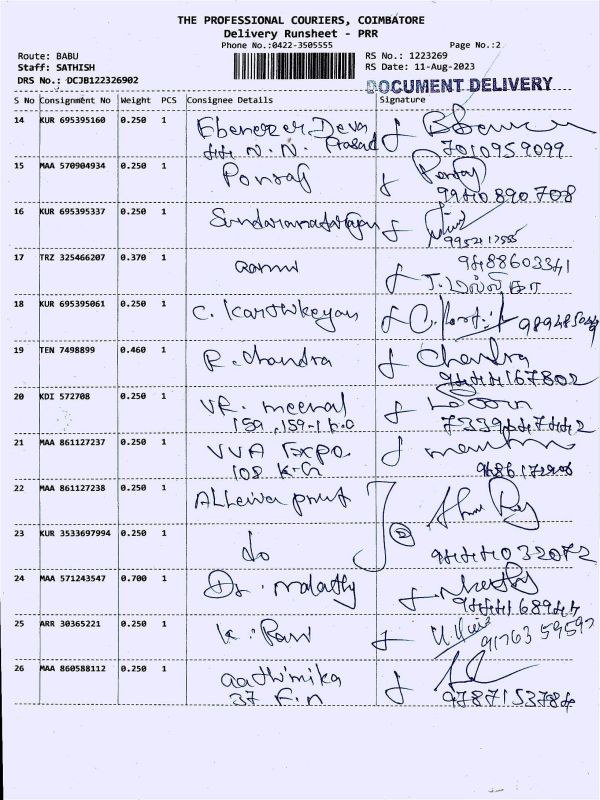 THE PROFESSIONAL COURIERS, COIMBATORE
Delivery Runsheet - PRR
Phone No.:0422-3505555
Page No.:2
Route: BABU
RS No.: 1223269
Staff: SATHISH
RS Date: 11-Aug-2023
DRS No.: DCJB122326902
DOCUMENT DELIVERY
S No Consignment No Weight PCS Consignee Details Signature
14 KUR 695395160 0.250 1 Ebenezer Deva
N. N. Prasad 7010959099
15 MAA 570904934 0.250 1 Ponraj
9940890708
16 KUR 695395337 0.250 1
17 TRZ 325466207 0.370 1 9488603341
18 KUR 695395061 0.250 1 C. Karthikeyan
19 TEN 7498899 0.460 1 R. Chandra Chandra
9444167802
20 KDI 572708 0.250 1 VR. meenal
159, 159-1 7339447442
21 MAA 861127237 0.250 1 VVA Expo
108 K.G
22 MAA 861127238 0.250 1
23 KUR 3533697994 0.250 1 do 2
9444032072
24 MAA 571243547 0.700 1 Dr. malathy
25 ARR 30365221 0.250 1 K. Ravi
26 MAA 860588112 0.250 1 aathmika
37 F.n 9787153784